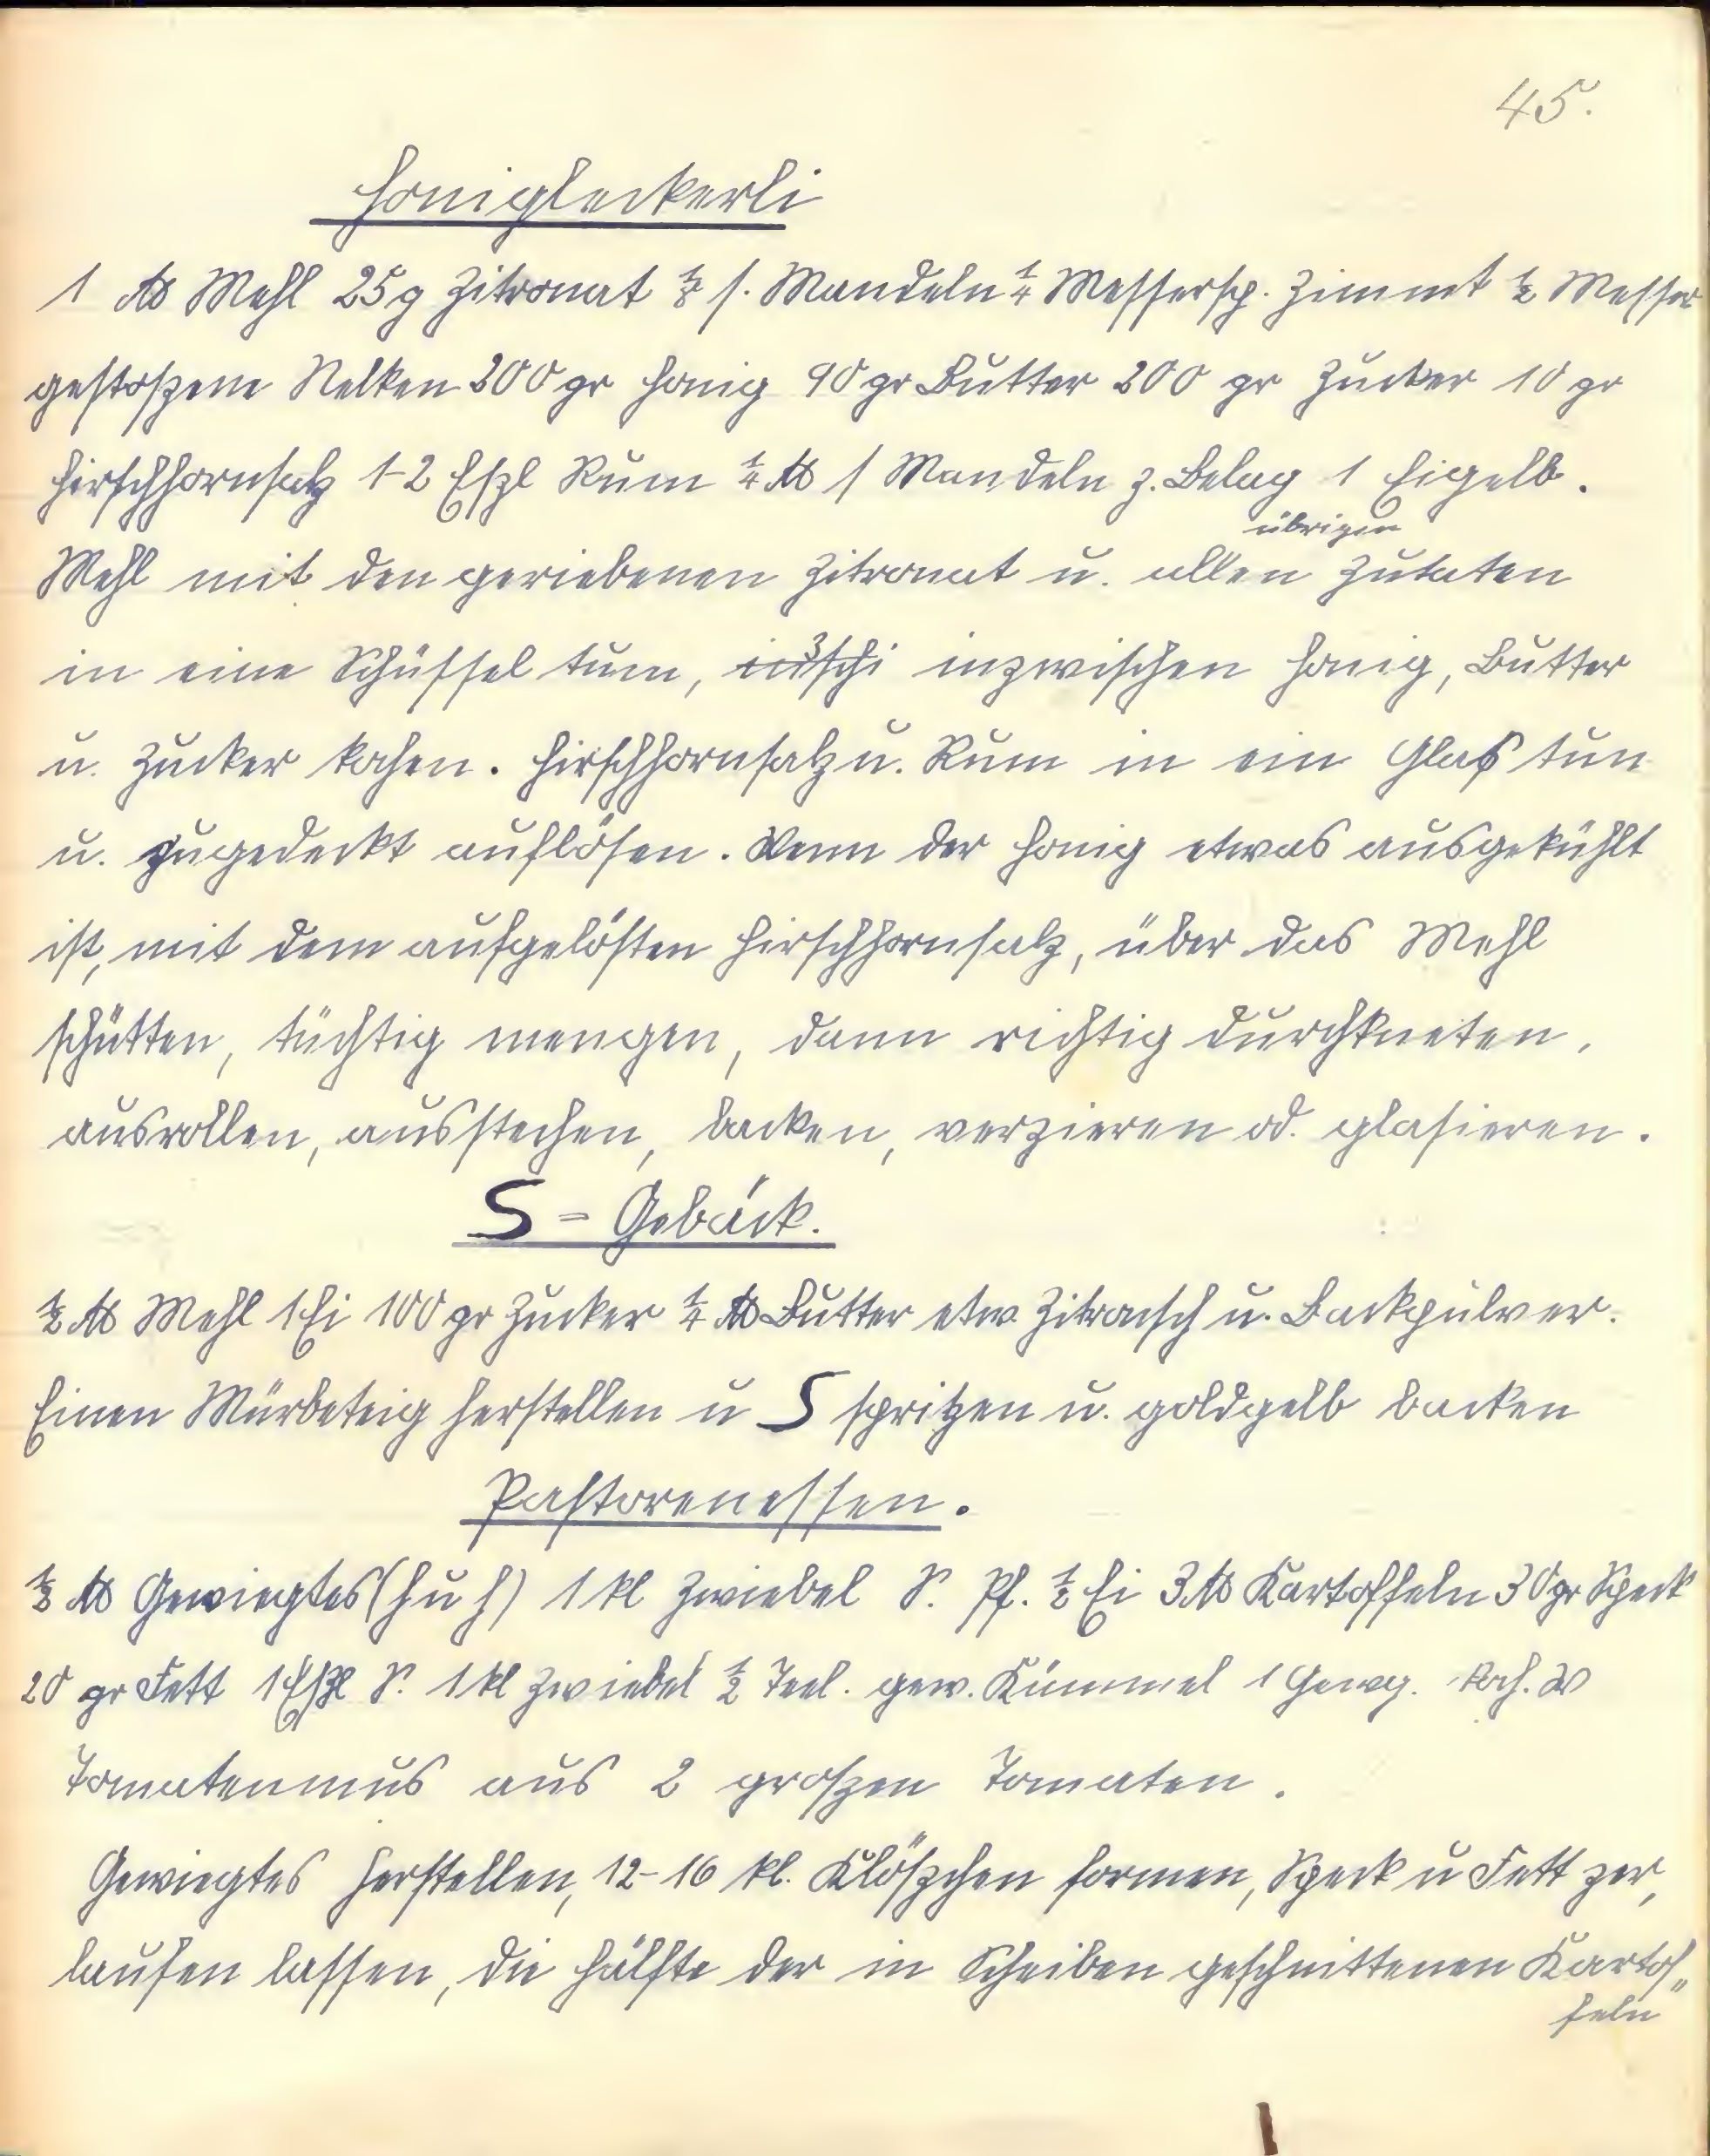 45.
Honigleckerli
1 ℔ Mehl 25g Zitronat ⅛ s. Mandeln ¼ Messersp. Zimmt ½ Messer
gestoßene Nelken 200 gr Honig 90 gr Butter 200 gr Zucker 10 gr
Hirschhornsalz 1-2 Eßl Rum ¼ ℔ s Mandeln z. Belag 1 Eigelb.
übrigen
Mehl mit den geriebenen Zitronat u. allen Zutaten
in eine Schüssel tum, inzwischen Honig, Butter
u. Zucker kochen. Hirschhornsalz u. Rum in ein Glas tun
u. zugedeckt auflösen. Wenn der Honig etwas ausgekühlt
ist, mit dem aufgelösten Hirschhornsalz, über das Mehl
schütten, tüchtig mengen, dann richtig durchkneten,
ausrollen, ausstechen, backen, verzieren od. glasieren.
S = Gebäck.
½ ℔ Mehl 1 Ei 100 gr Zucker ¼ ℔ Butter etw. u. Backpulver.
Einen Mürbeteig herstellen u S spritzen u. goldgelb backen
Pastorenessen.
½ ℔ Gewiegtes (h u h) 1 kl Zwiebel S. Pf. ½ Ei 3 ℔ Kartoffeln 30 gr Speck
20 gr Fett 1 Eßl S. 1 kl Zwiebel ½ Teel. gew. Kümmel 1 koch. W
Tomatenmus aus 2 großen Tomaten.
Gewiegtes herstellen, 12-16 kl. Klößchen formen, Speck u Fett zer,
laufen lassen, die Hälfte der in Scheiben geschnittenen Kartof„
feln"